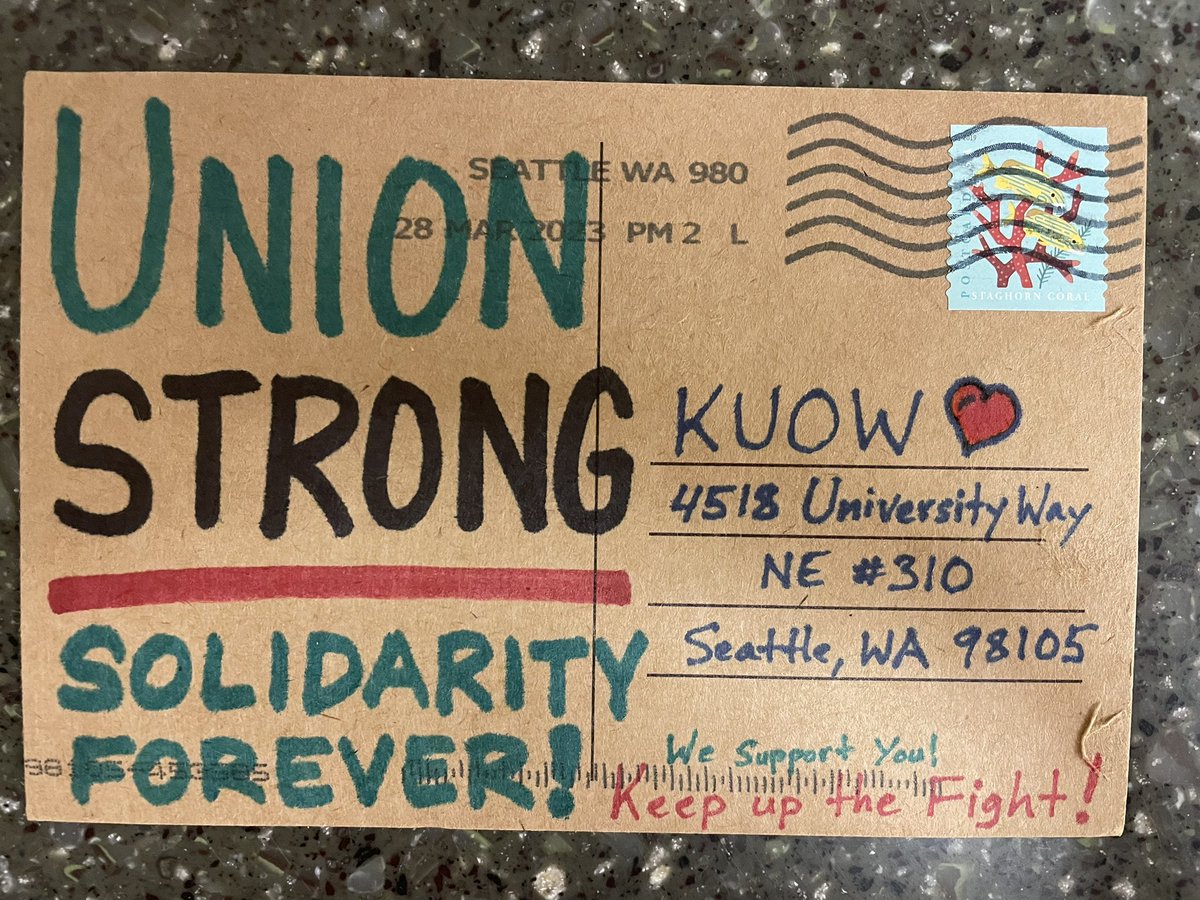 SEATTLE WA 980
28 MAR 2023 PM 2 L
UNION
STRONG
SOLIDARITY
FOREVER!
STAGHORN CORAL
KUOW
4518 University Way
NE #310
Seattle, WA 98105
We Support You!
Keep up the Fight!